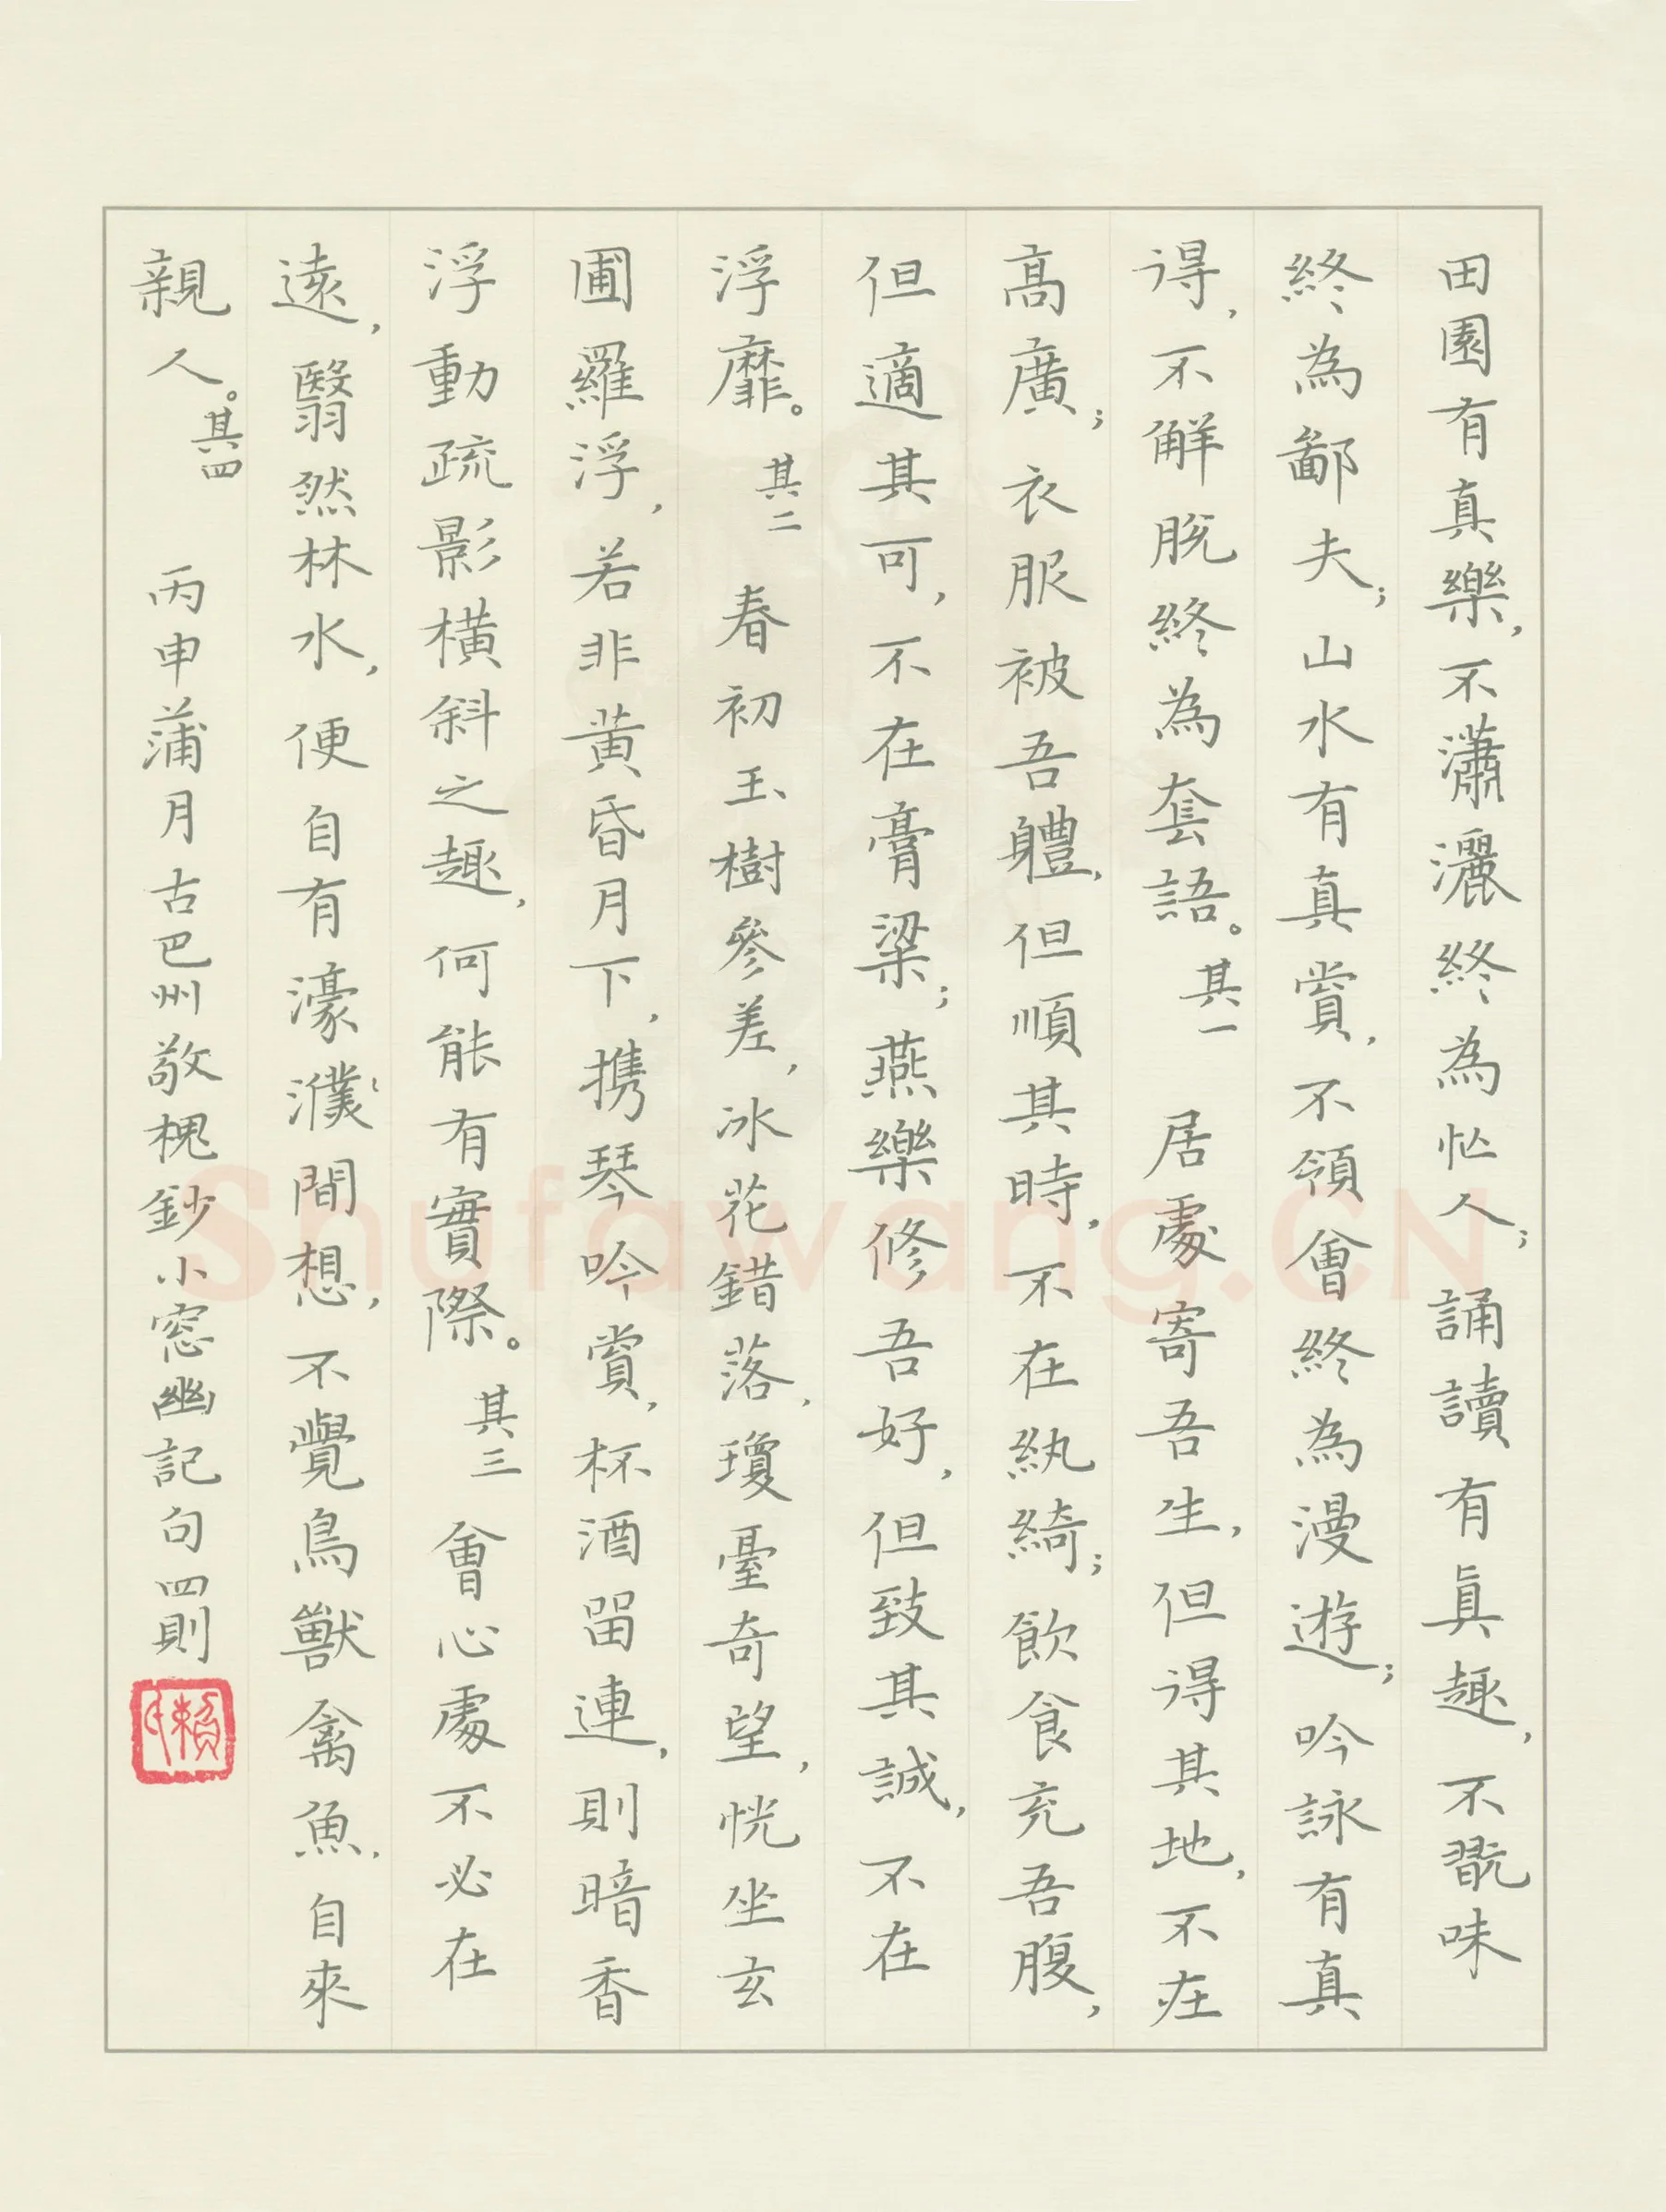 田園有真樂，不瀟灑終為忙人；誦讀有眞趣，不翫味
終為鄙夫；山水有真賞，不領會終為漫遊；吟詠有真
得，不解脫終為套語。其一　居處寄吾生，但得其地，不在
高廣；衣服被吾軆，但順其時，不在紈綺；飲食充吾腹，
但適其可，不在膏粱；燕樂修吾好，但致其誠，不在
浮靡。其二　春初玉樹參差，冰花錯落，瓊臺奇望，恍坐玄
圃羅浮，若非黃昏月下，携琴吟賞，杯酒留連，則暗香
浮動疏影橫斜之趣，何能有實際。其三　會心處不必在
遠，翳然林水，便自有濠濮間想，不覺鳥獸禽魚，自來
親人。其四　丙申蒲月古巴州敬槐鈔小窓幽記句四則
Shufawang.CN